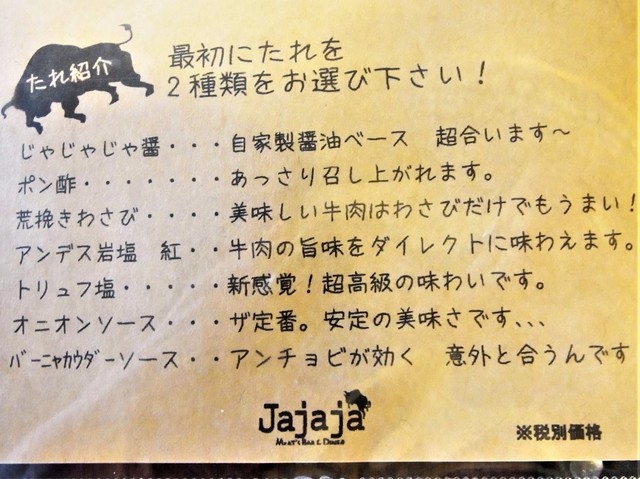 たれ紹介
最初にたれを
2種類をお選び下さい!
じゃじゃじゃ醤・・・自家製醤油ベース 超合います〜
ポン酢・・・・・・・あっさり召し上がれます。
荒挽きわさび・・・・美味しい牛肉はわさびだけでもうまい!
アンデス岩塩 紅・・牛肉の旨味をダイレクトに味わえます。
トリュフ塩・・・・・新感覚!超高級の味わいです。
オニオンソース・・・ザ定番。安定の美味さです、、、
バーニャカウダーソース・・アンチョビが効く 意外と合うんです
Jajaja
MEAT'S BAR & DINER
※税別価格